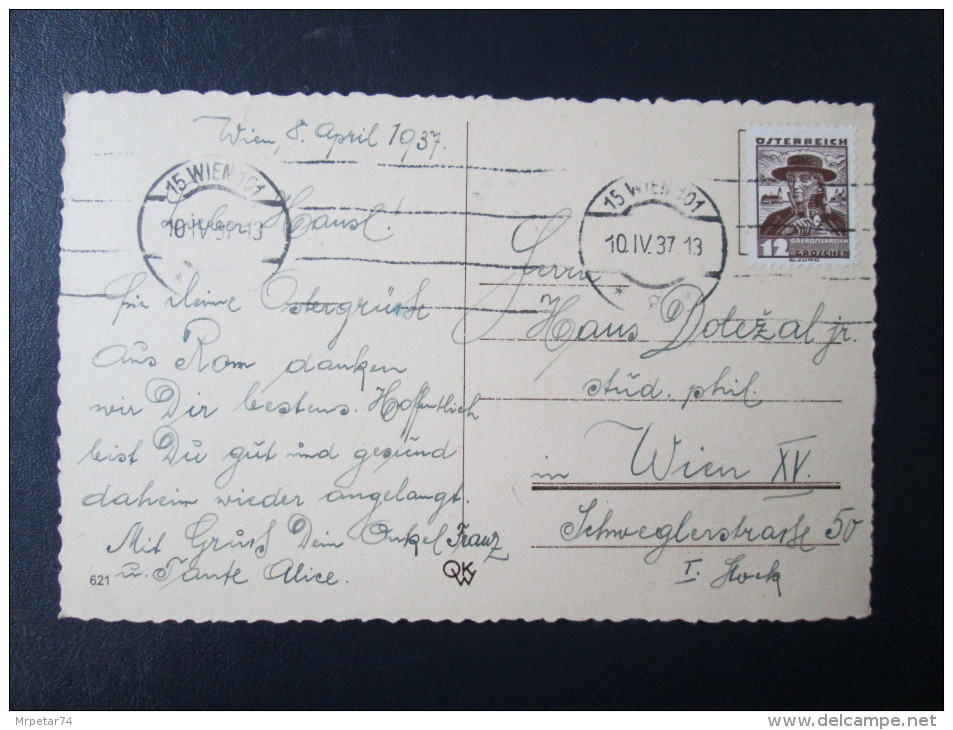 Wien, 8. April 1937.
15 WIEN 101
10.IV.37 13
Lieber Hansl!
für Deine Ostergrüsse
aus Rom danken
wir Dir bestens. Hoffentlich
bist Du gut und gesund
daheim wieder angelangt.
Mit Gruß Dein Onkel Franz
u. Tante Alice.
621
QKW
15 WIEN 101
10.IV.37 13
ÖSTERREICH
12
OBERÖSTERREICH
GROSCHEN
G.JUNG
Herrn
Hans Doležal jr.
stud. phil.
in Wien XV.
Schweglerstrasse 50
I. Stock
Mrpetar74
delcampe.net